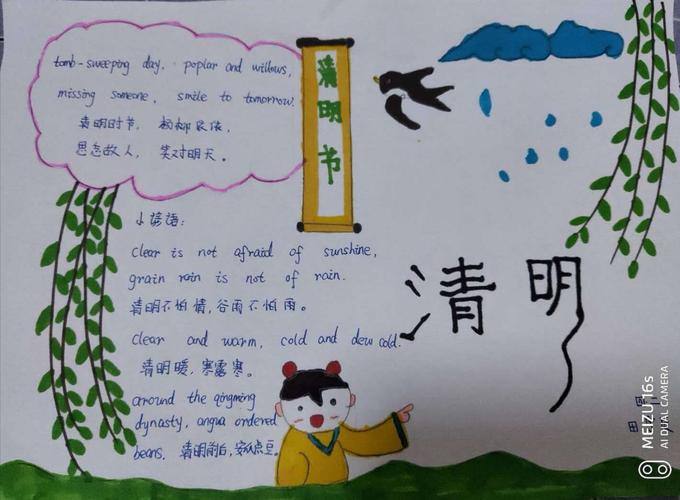 tomb-sweeping day, poplar and willows,
missing someone, smile to tomorrow.
清明时节, 杨柳依依,
思念故人, 笑对明天。
清明节
小谚语:
clear is not afraid of sunshine,
grain rain is not of rain.
清明不怕晴,谷雨不怕雨。
clear and warm, cold and dew cold.
清明暖,寒露寒。
around the qingming
dynasty, angua ordered
beans. 清明前后,安瓜点豆。
清明
MEIZU 16s
AI DUAL CAMERA